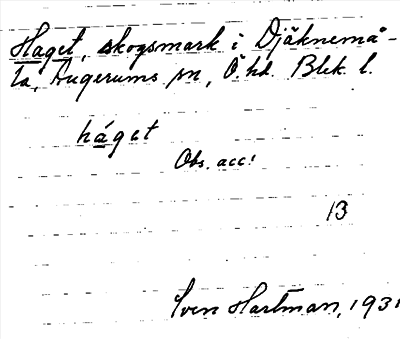 Haget, skogsmark i Djäknemå-
la, Augerums sn, Ö. hd. Blek. l.
háget
Obs. acc!
13
Sven Hartman, 1931